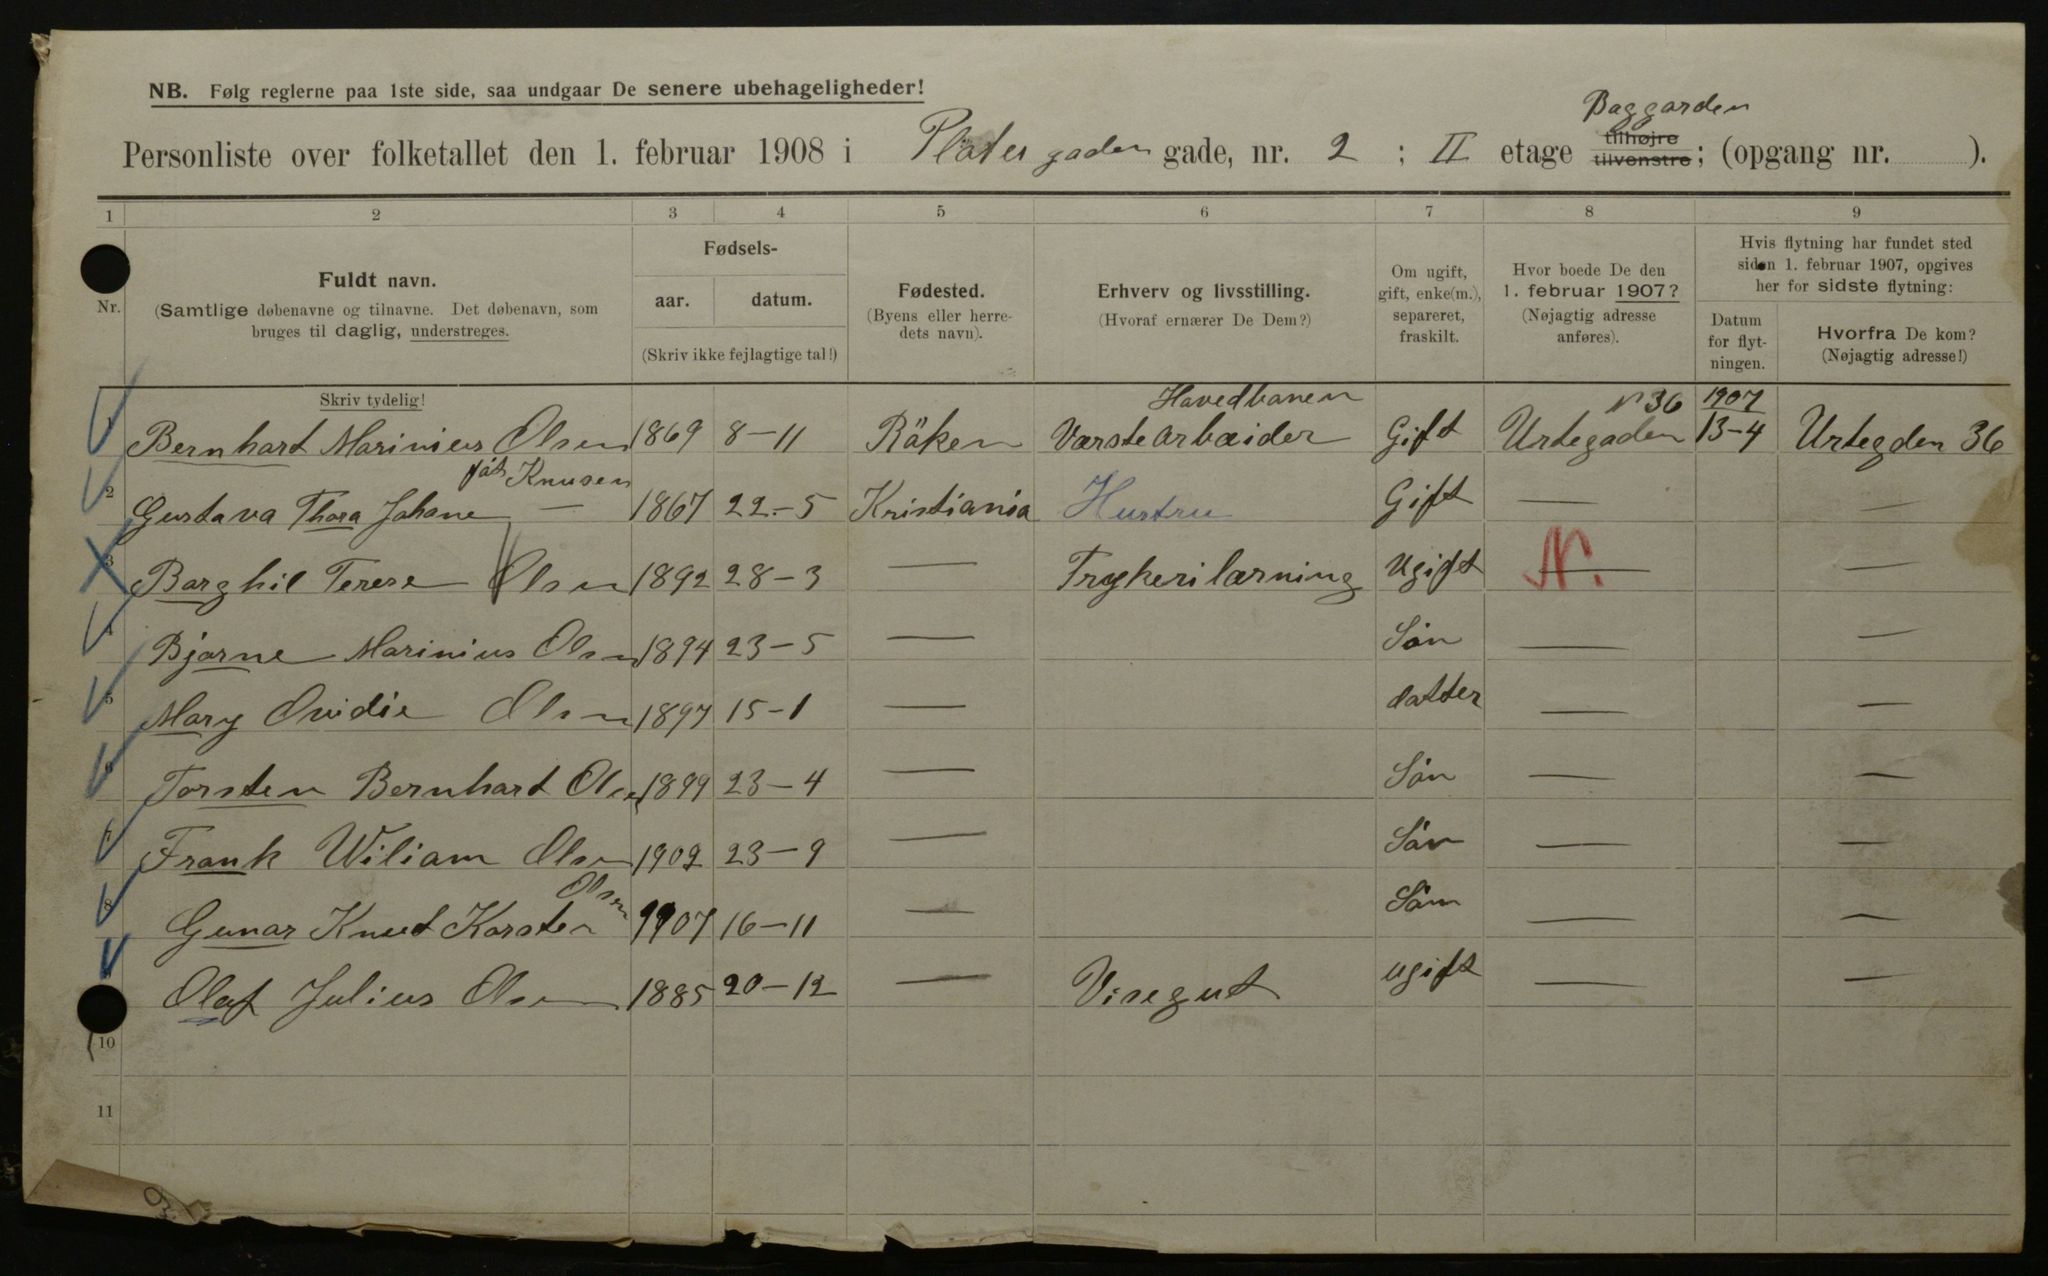 NB. Følg reglerne paa 1ste side, saa undgaar De senere ubehageligheder!
Baggarden
Personliste over folketallet den 1. februar 1908 i Platousgaden gade, nr. 2 ; II etage tilhøjre tilvenstre; (opgang nr. ).
1 2 3 4 5 6 7 8 9
Nr.
Fuldt navn.
(Samtlige døbenavne og tilnavne. Det døbenavn, som
bruges til daglig, understreges.
Skriv tydelig!
Fødsels-
aar. datum.
(Skriv ikke fejlagtige tal!)
Fødested.
(Byens eller herre-
dets navn).
Erhverv og livsstilling.
(Hvoraf ernærer De Dem?)
Om ugift,
gift, enke(m.),
separeret,
fraskilt.
Hvor boede De den
1. februar 1907?
(Nøjagtig adresse
anføres).
Hvis flytning har fundet sted
siden 1. februar 1907, opgives
her for sidste flytning:
Datum
for flyt-
ningen.
Hvorfra De kom?
(Nøjagtig adresse!)
Hovedbanen N 36 1907
1 Bernhart Marinius Olsen 1869 8-11 Röken Værste Arbæider Gift Urtegaden 13-4 Urtegden 36
föt Knusen
2 Gustava Thora Johane — 1867 22-5 Kristiania Hustru Gift — —
3 Borghil Terese Olsen 1892 28-3 — Trykerilærning Ugift N. — —
4 Bjarne Marinius Olsen 1894 23-5 — Sön — —
5 Mary Ovidie Olsen 1897 15-1 — datter — —
6 Torsten Bernhart Olsen 1899 23-4 — Sön — —
7 Frank Wiliam Olsen 1902 23-9 — Sön — —
Olsen
8 Gunar Knut Karsten 1907 16-11 — Sön — —
9 Olaf Julius Olsen 1885 20-12 — Visegut ugift — —
10
11